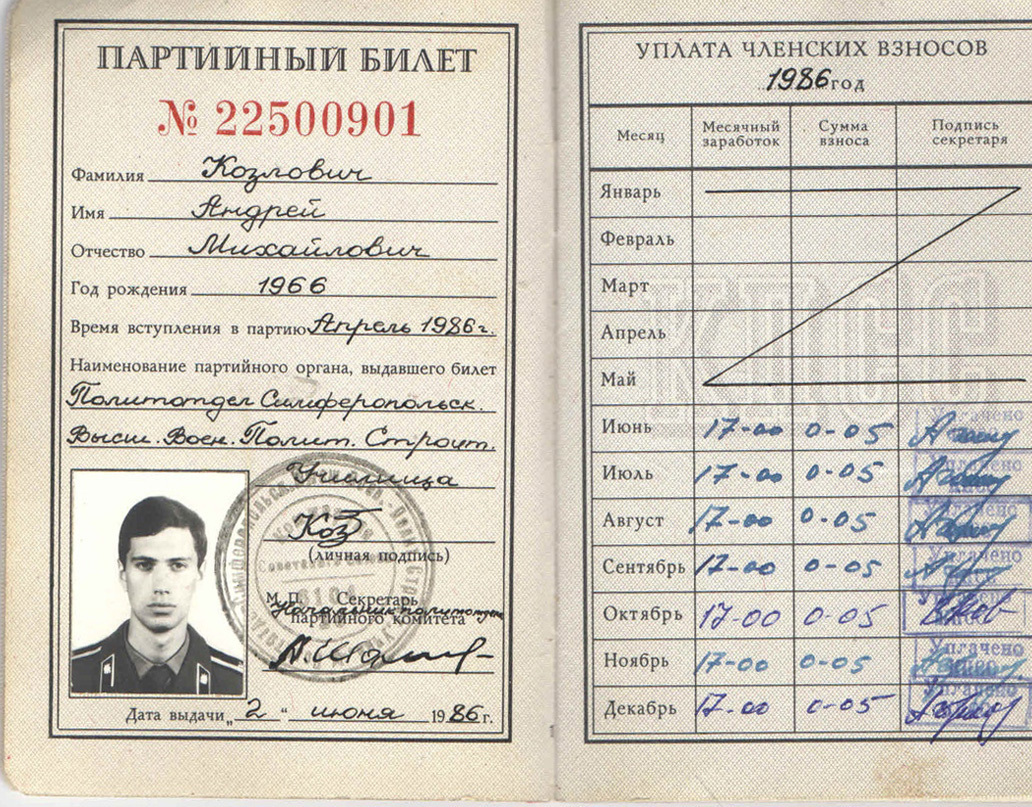 ПАРТИЙНЫЙ БИЛЕТ
№ 22500901
Фамилия Козлович
Имя Андрей
Отчество Михайлович
Год рождения 1966
Время вступления в партию Апрель 1986 г.
Наименование партийного органа, выдавшего билет
Политотдел Симферопольск.
Высш. Воен. Полит. Строит.
Училища
Коз
(личная подпись)
М. П. Секретарь
Начальник политотдела
партийного комитета
Дата выдачи „ 2 “ июня 1986 г.
УПЛАТА ЧЛЕНСКИХ ВЗНОСОВ
1986 год
Месяц Месячный заработок Сумма взноса Подпись секретаря
КПСС
Январь
Февраль
Март
Апрель
Май
Июнь 17-00 0-05 Уплачено
Июль 17-00 0-05 Уплачено
Август 17-00 0-05 Уплачено
Сентябрь 17-00 0-05 Уплачено
Октябрь 17-00 0-05
Ноябрь 17-00 0-05 Уплачено
Декабрь 17-00 0-05 Уплачено